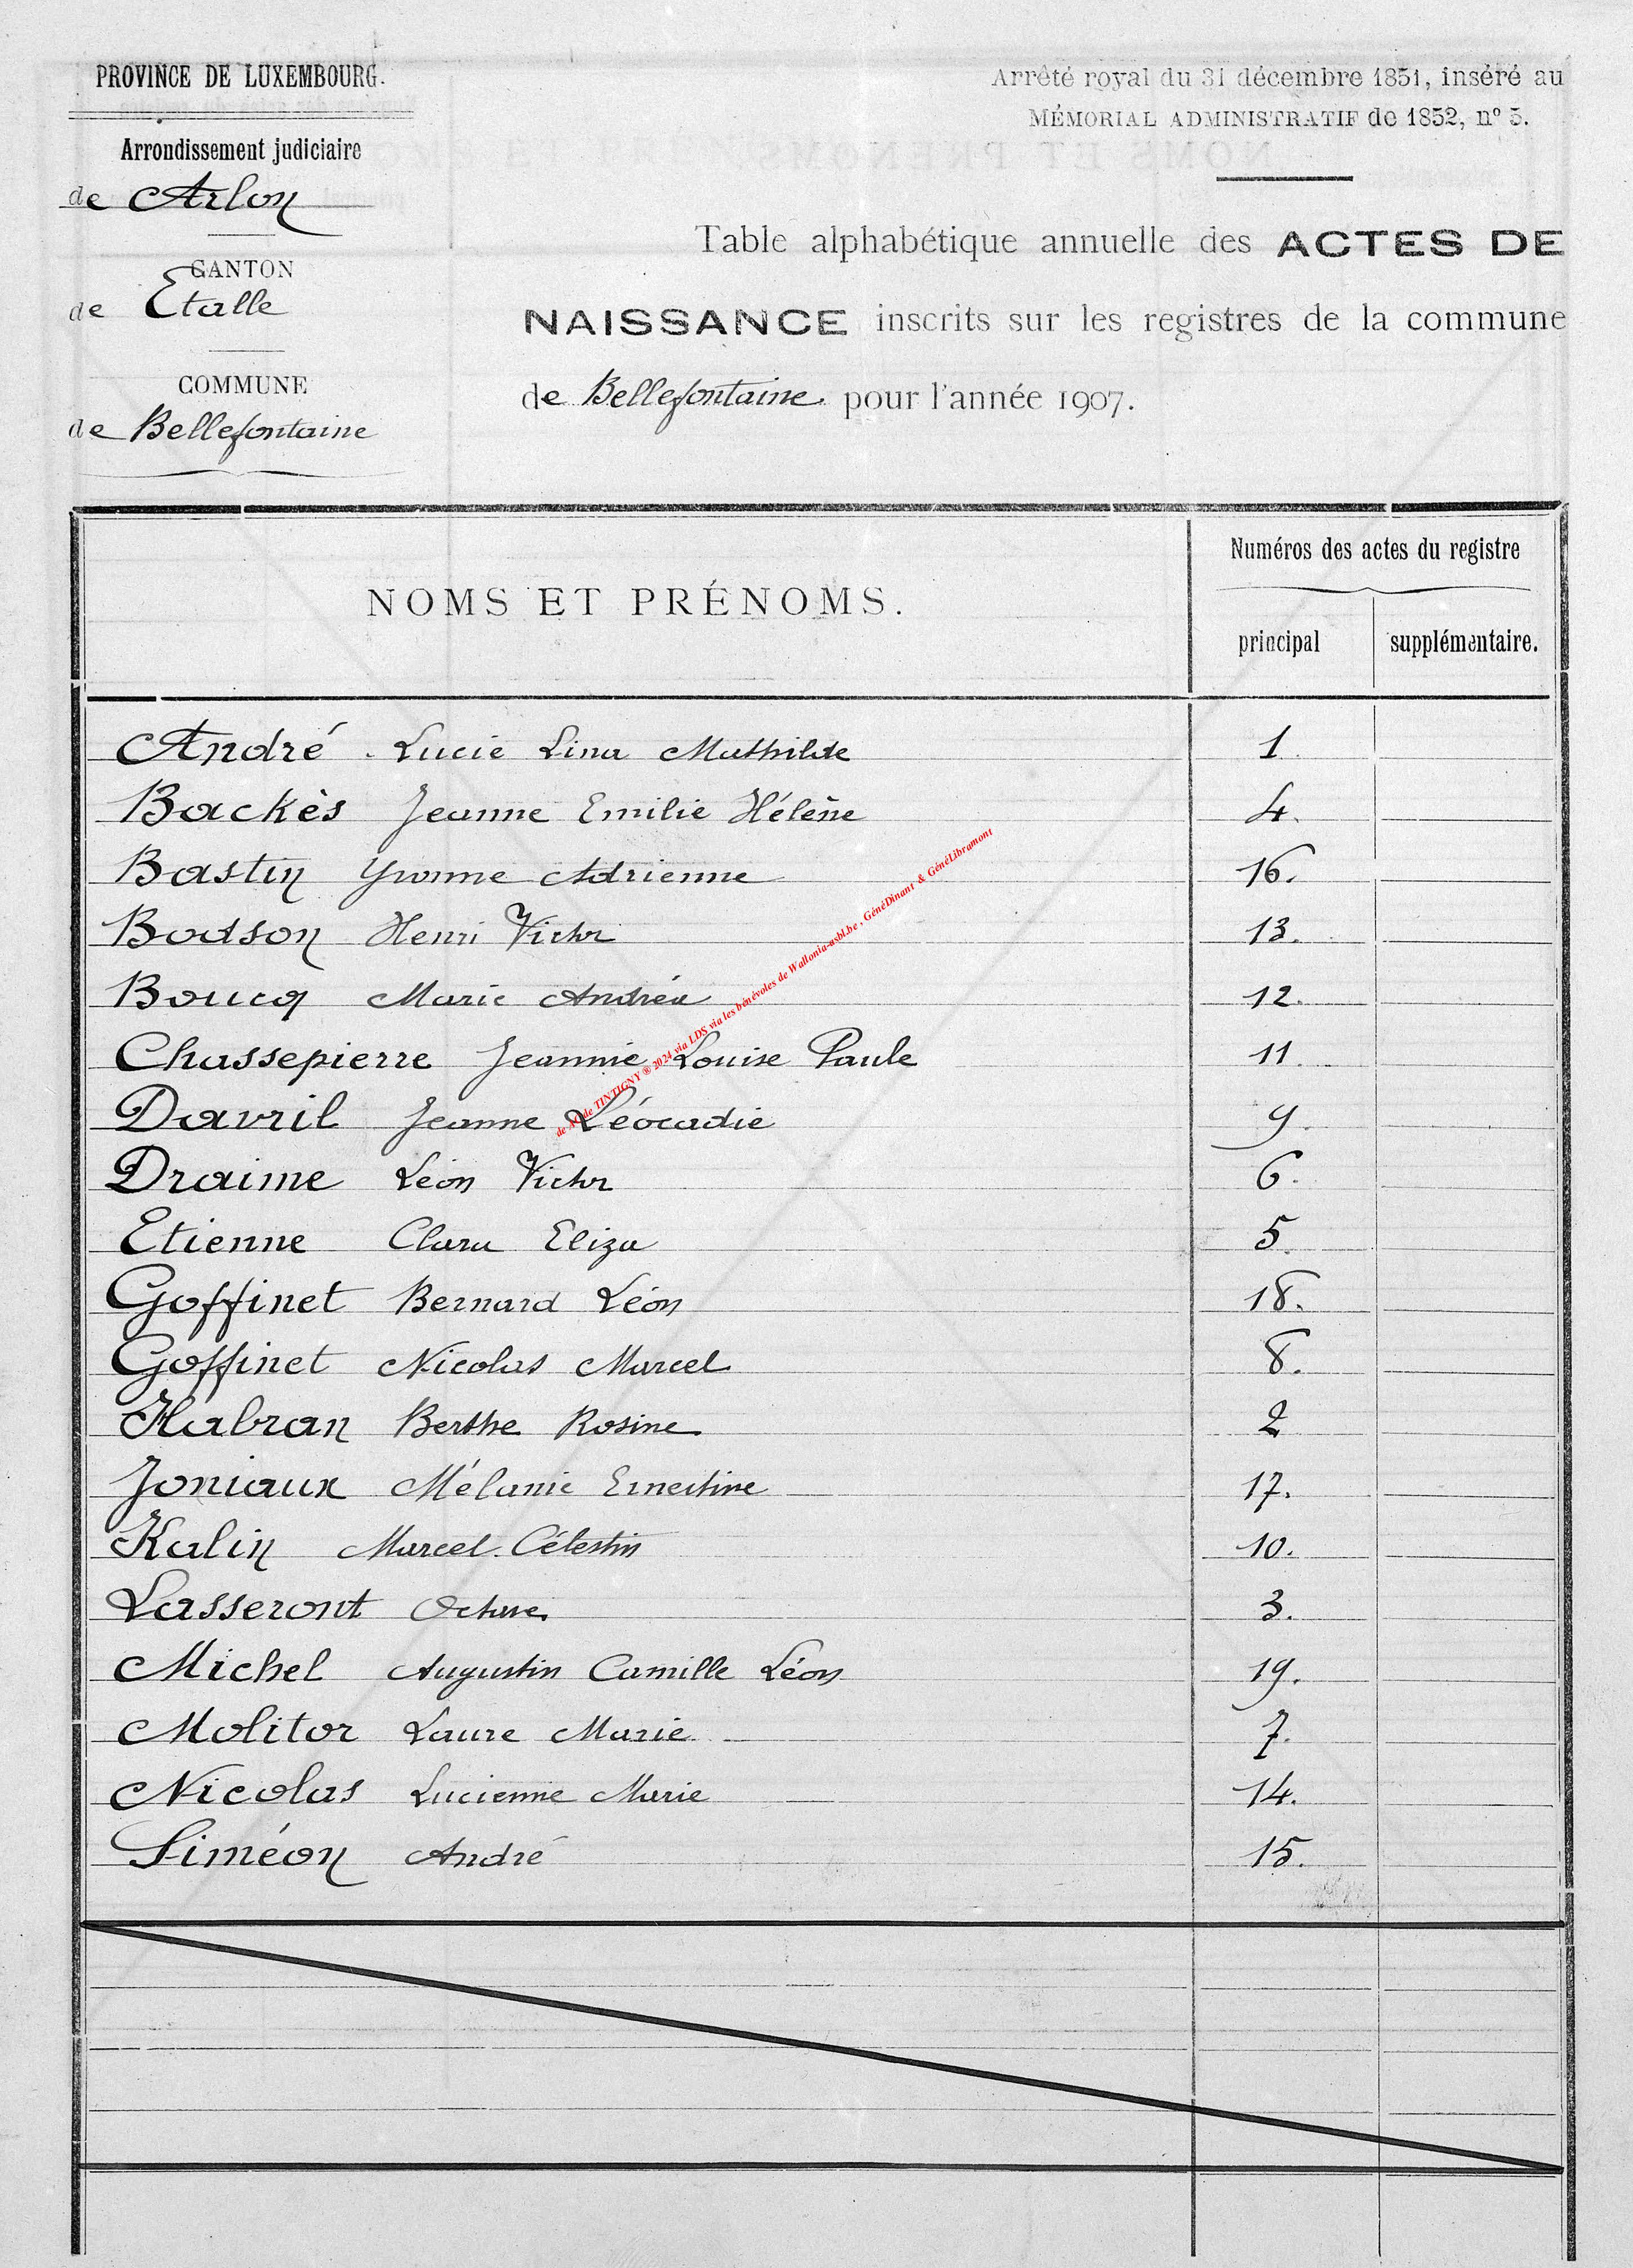 PROVINCE DE LUXEMBOURG.
Arrondissement judiciaire
de Arlon
CANTON
de Etalle
COMMUNE
de Bellefontaine
Arrêté royal du 31 décembre 1851, inséré au
MÉMORIAL ADMINISTRATIF de 1852, nº 5.
Table alphabétique annuelle des ACTES DE
NAISSANCE inscrits sur les registres de la commune
de Bellefontaine pour l'année 1907.
NOMS ET PRÉNOMS.
Numéros des actes du registre
principal supplémentaire.
André Lucie Lina Mathilde 1.
Backès Jeanne Emilie Hélène 4.
Bastin Yvonne Adrienne 16.
Bodson Henri Victor 13.
Boucq Marie Andréa 12.
Chassepierre Jeannie Louise Paule 11.
Davril Jeanne Léocadie 9.
Draime Léon Victor 6.
Etienne Clara Eliza 5.
Goffinet Bernard Léon 18.
Goffinet Nicolas Marcel 8.
Habran Berthe Rosine 2
Joniaux Mélanie Ernestine 17.
Kalin Marcel Célestin 10.
Lasseront Octave 3.
Michel Augustin Camille Léon 19.
Molitor Laure Marie 7.
Nicolas Lucienne Marie 14.
Siméon André 15.
de TINTIGNY ® 2024 via LDS via les bénévoles de Wallonia-asbl.be , GénéDinant & GénéLibramont